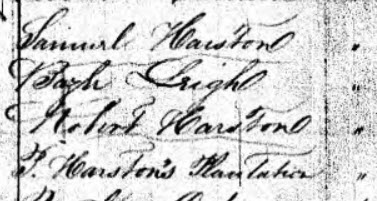 Samuel Hairston "
Leigh "
Robert Hairston "
P. Hairston's Plantation "